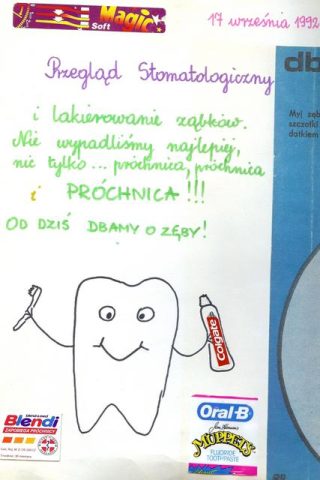 Magic
Soft
17 września 1992
Przegląd Stomatologiczny
i lakierowanie ząbków.
Nie wypadliśmy najlepiej,
nic tylko ... próchnica, próchnica
i PRÓCHNICA!!!
OD DZIŚ DBAMY O ZĘBY!
db
Myj zęb
szczotki
datkiem
Colgate
Blendi
ZAPOBIEGA PRÓCHNICY
Oral-B
Jim Henson's
MUPPETS
FLUORIDE
TOOTHPASTE